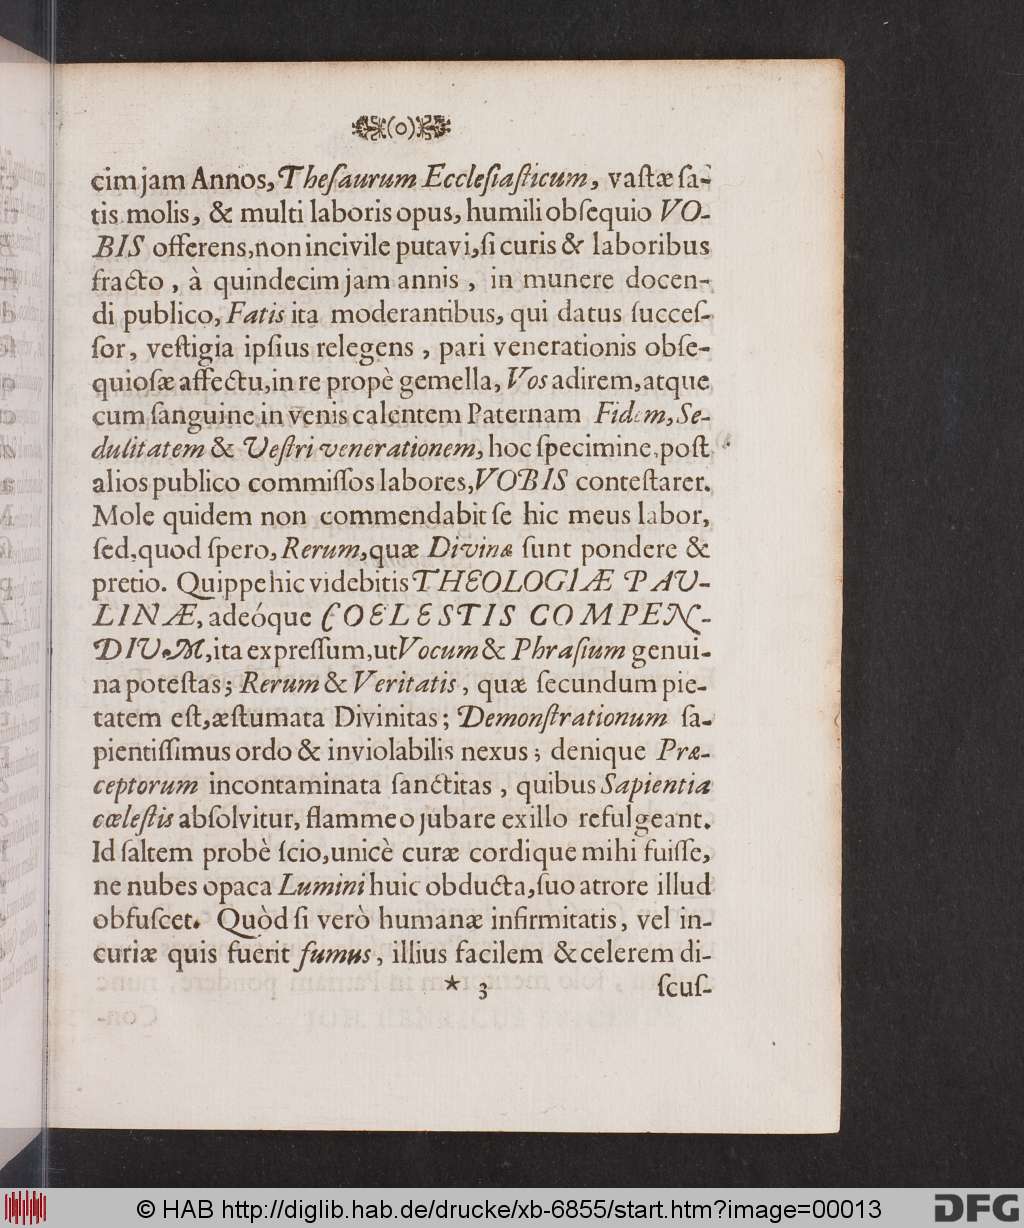 (o)
cim jam Annos, Theſaurum Eccleſiaſticum, vaſtæ ſa-
tis molis, & multi laboris opus, humili obſequio VO-
BIS offerens, non incivile putavi, ſi curis & laboribus
fracto, à quindecim jam annis, in munere docen-
di publico, Fatis ita moderantibus, qui datus ſucceſ-
ſor, veſtigia ipſius relegens, pari venerationis obſe-
quioſæ affectu, in re propè gemella, Vos adirem, atque
cum ſanguine in venis calentem Paternam Fidem, Se-
dulitatem & Veſtri venerationem, hoc ſpecimine, poſt
alios publico commiſſos labores, VOBIS conteſtarer.
Mole quidem non commendabit ſe hic meus labor,
ſed, quod ſpero, Rerum, quæ Divinæ ſunt pondere &
pretio. Quippe hic videbitis THEOLOGIÆ PAU-
LINÆ, adeóque COELESTIS COMPEN-
DIUM, ita expreſſum, ut Vocum & Phraſium genui-
na poteſtas; Rerum & Veritatis, quæ ſecundum pie-
tatem eſt, æſtumata Divinitas; Demonſtrationum ſa-
pientiſſimus ordo & inviolabilis nexus; denique Præ-
ceptorum incontaminata ſanctitas, quibus Sapientia
cœleſtis abſolvitur, flammeo jubare ex illo refulgeant.
Id ſaltem probè ſcio, unicè curæ cordique mihi fuiſſe,
ne nubes opaca Lumini huic obducta, ſuo atrore illud
obfuſcet. Quòd ſi verò humanæ infirmitatis, vel in-
curiæ quis fuerit fumus, illius facilem & celerem di-
* 3 ſcuſ-
© HAB http://diglib.hab.de/drucke/xb-6855/start.htm?image=00013
DFG